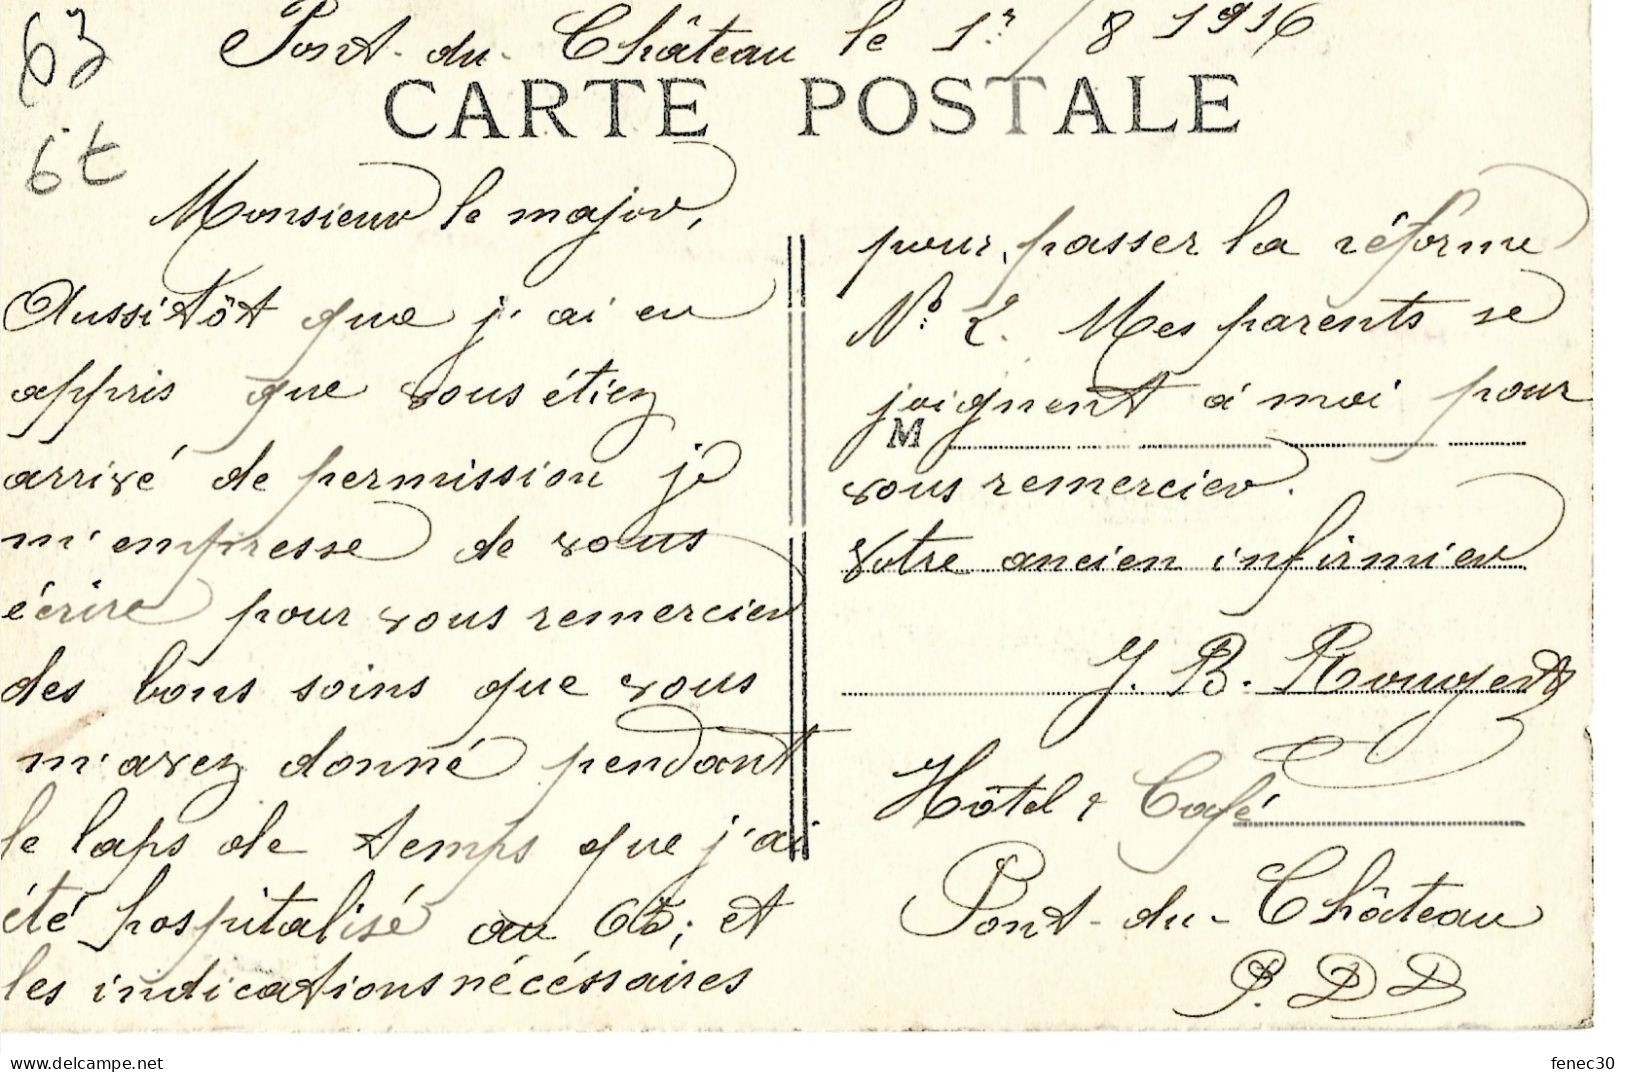 63
6t
Pont-du-Château le 1r/8 1916
CARTE POSTALE
Monsieur le major,
Aussitôt que j'ai eu
appris que vous étiez
arrivé de permission je
m'empresse de vous
écrire pour vous remercier
des bons soins que vous
m'avez donné pendant
le laps de temps que j'ai
été hospitalisé au 65; et
les indications nécéssaires
pour passer la réforme
No: 2. Mes parents se
joignent à moi pour
M
vous remercier.
Votre ancien infirmier
J. B. Rougert
Hôtel & Café
Pont-du-Château
P. D D
www.delcampe.net
fenec30